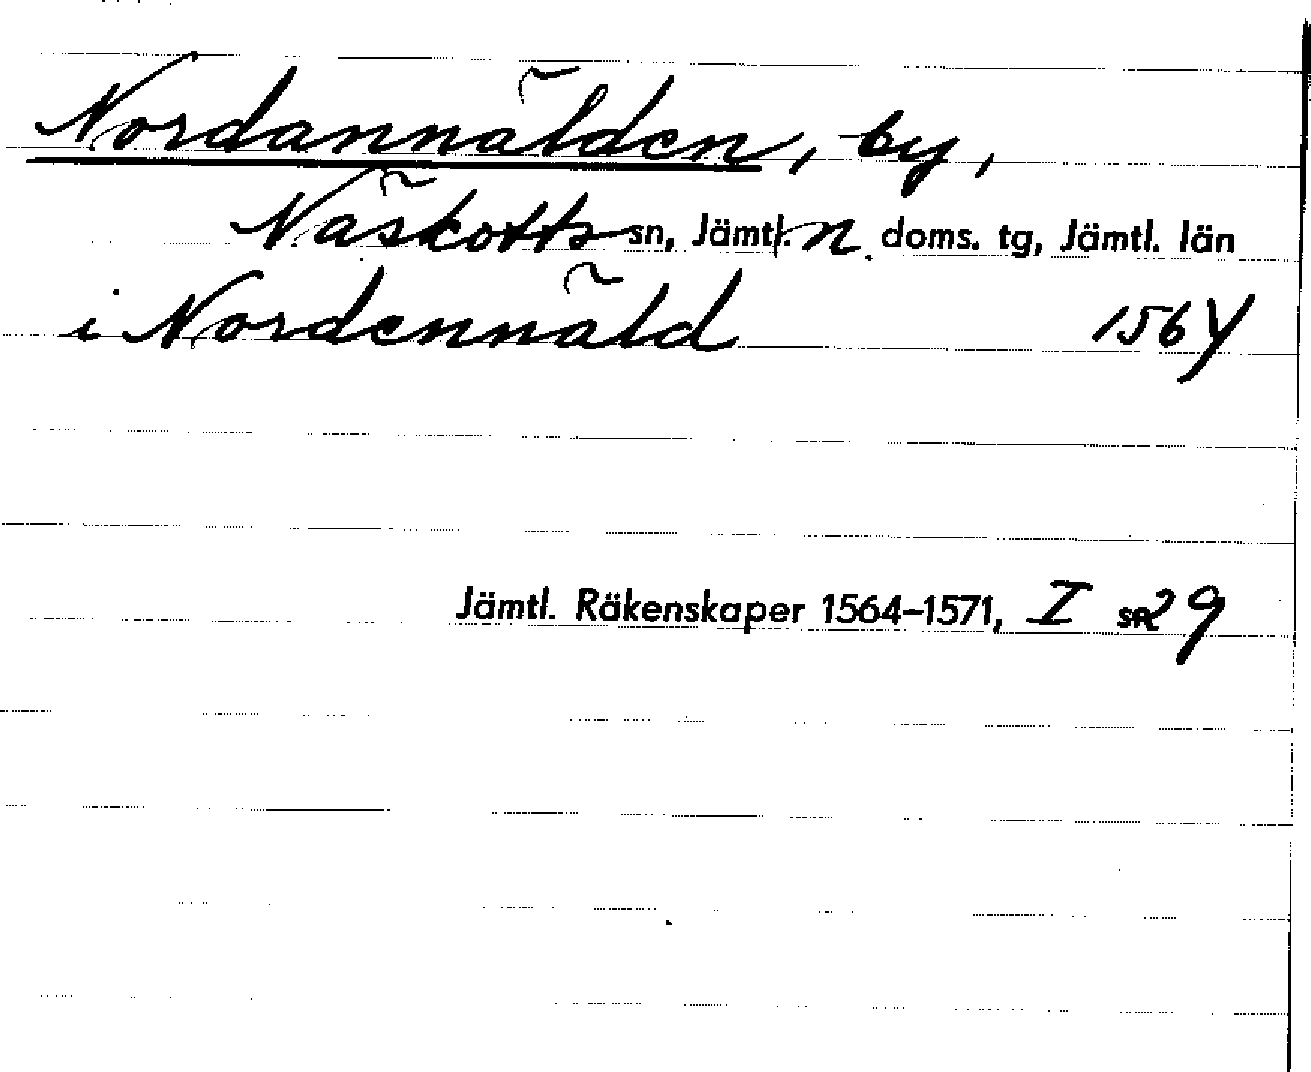 Nordannälden, by,
Näskotts sn, Jämtl. n. doms. tg, Jämtl. län
i Nordennäld 1564
Jämtl. Räkenskaper 1564–1571, I s. 29